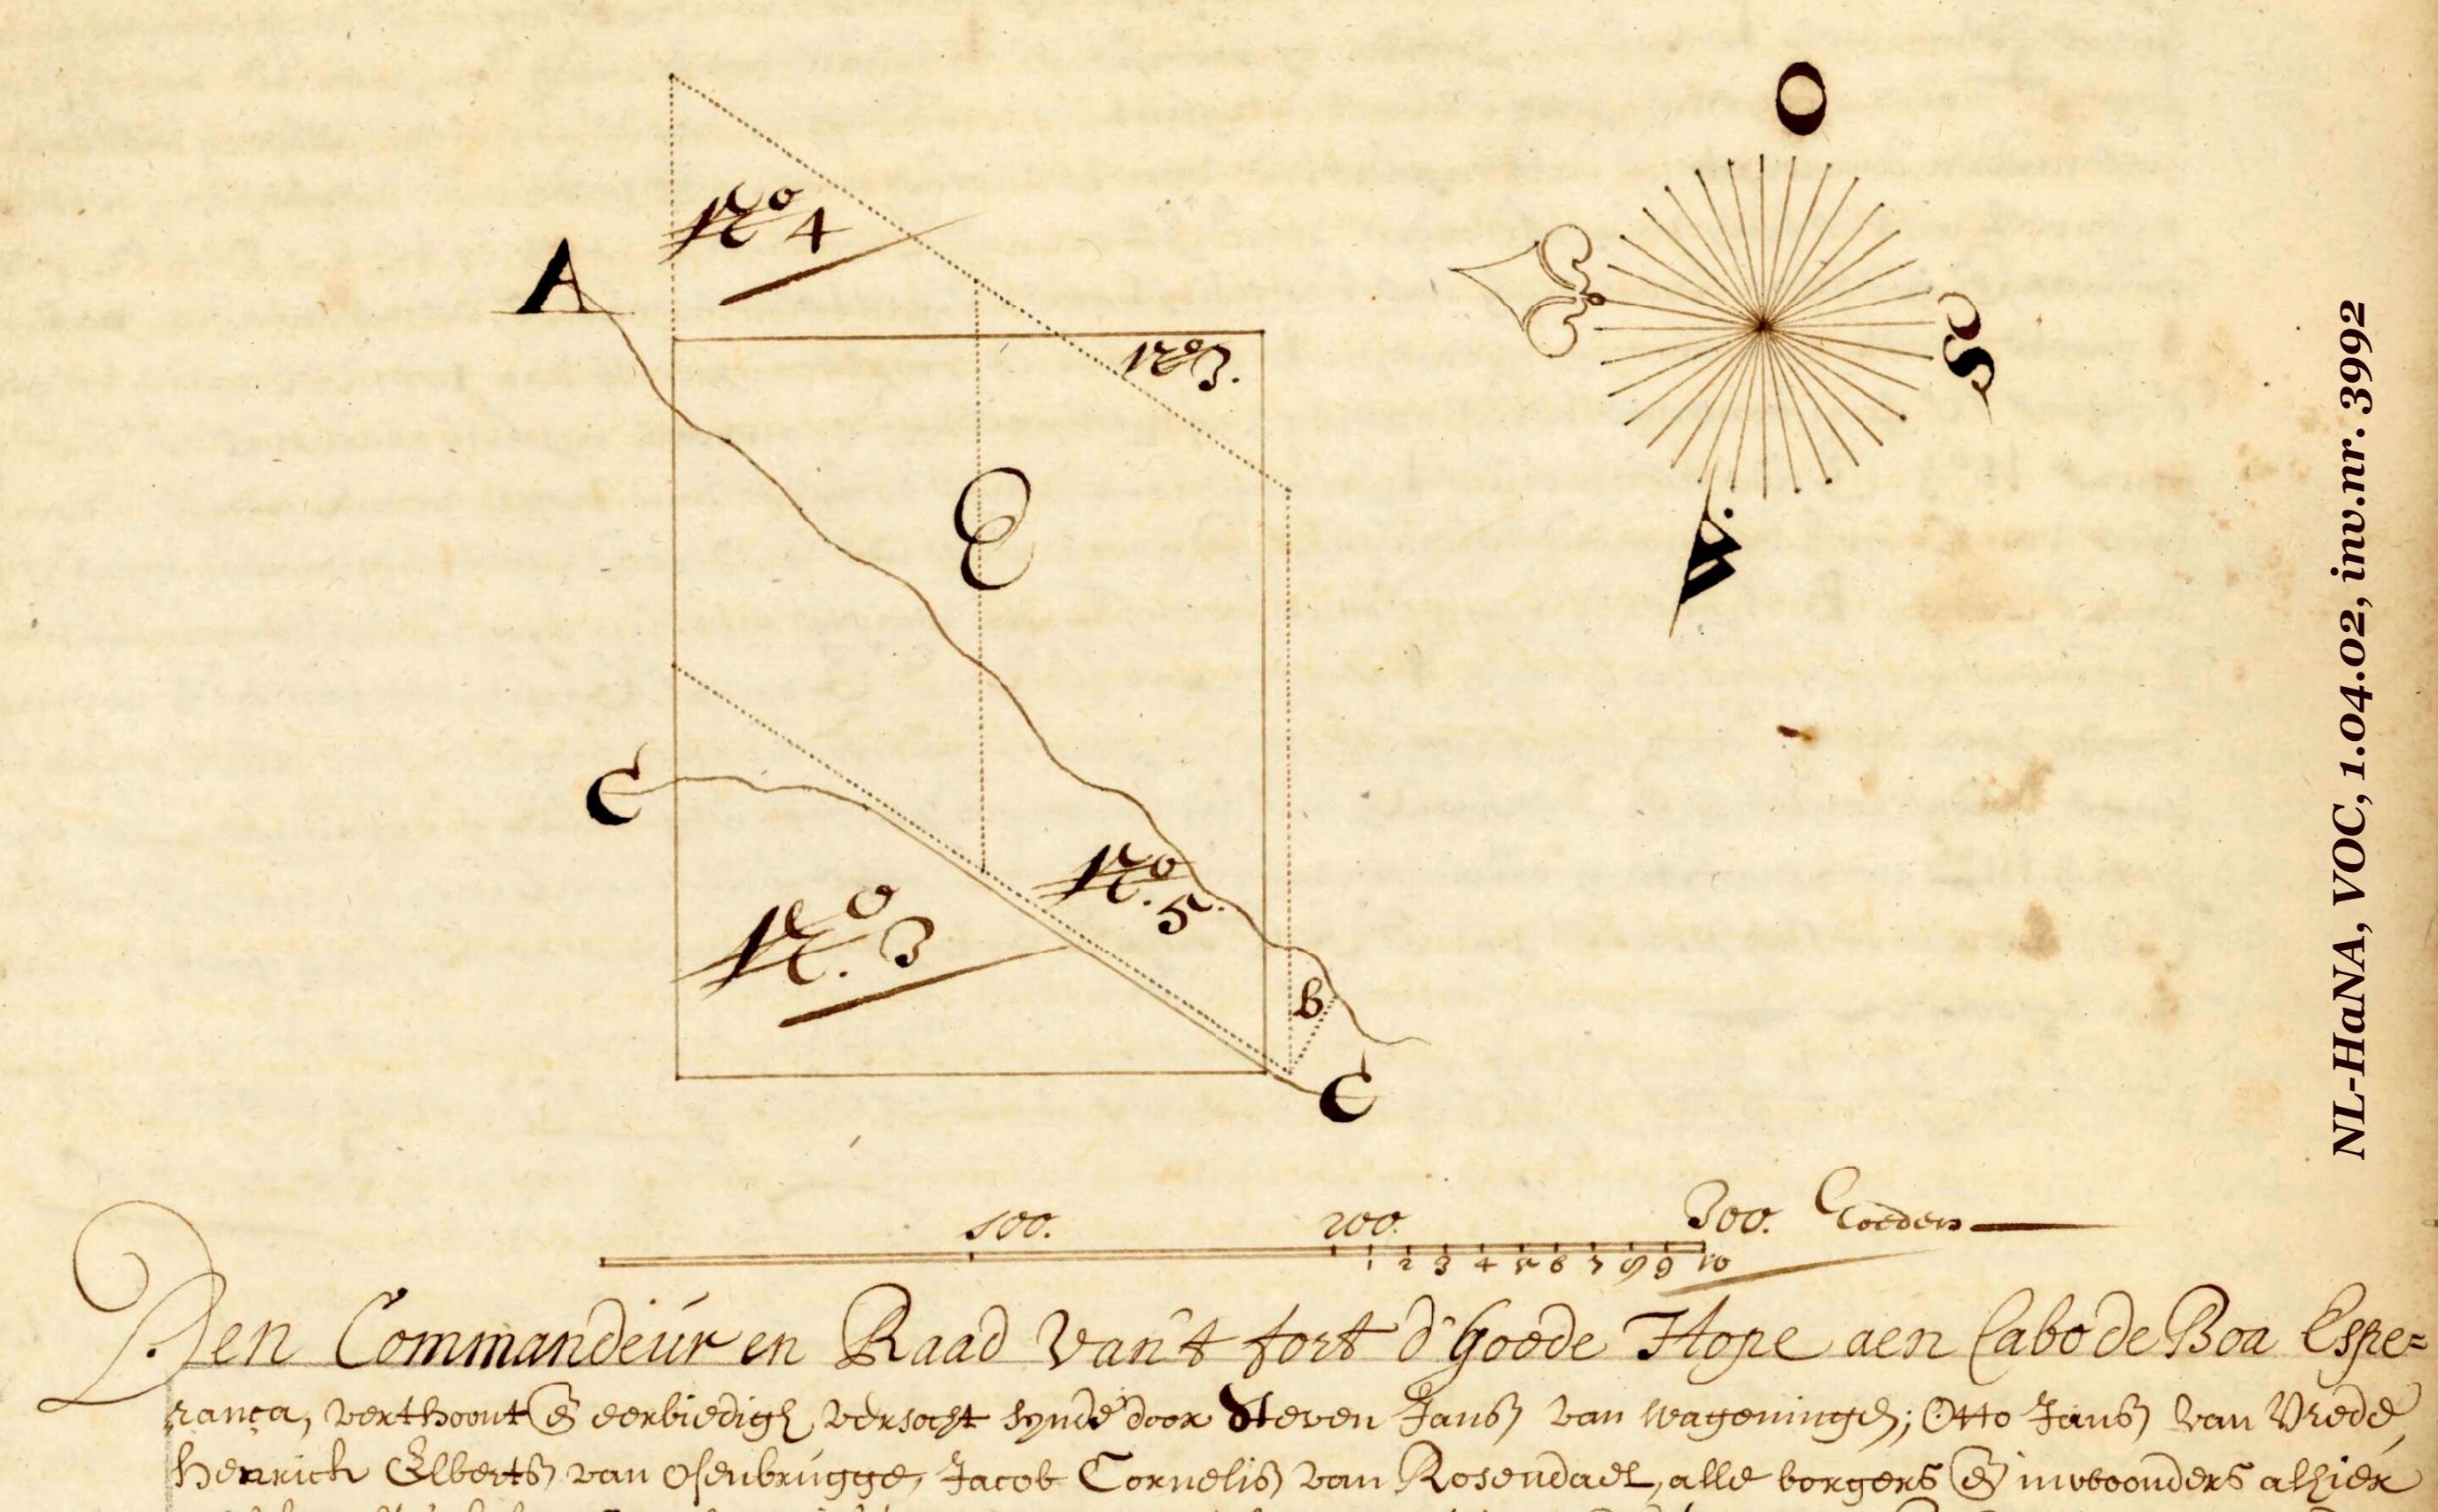 O
No 4
A
No 3.
S
E
W.
C
No. 5.
No. 3
b
C
100. 200. 300. Roeden
1 2 3 4 5 6 7 8 9 10
Den Commandeúr en Raad van't fort d'Goede Hope aen Cabo de Boa Espe=
rança, verthoont & eerbiedigh versocht synde door Steven Jansz van wageningen; Otto Jansz van Vrede,
Henrick Elbertsz van Osenbrúgge, Jacob Cornelisz van Rosendael, alle borgers & inwoonders alhier
NL-HaNA, VOC, 1.04.02, inv.nr. 3992